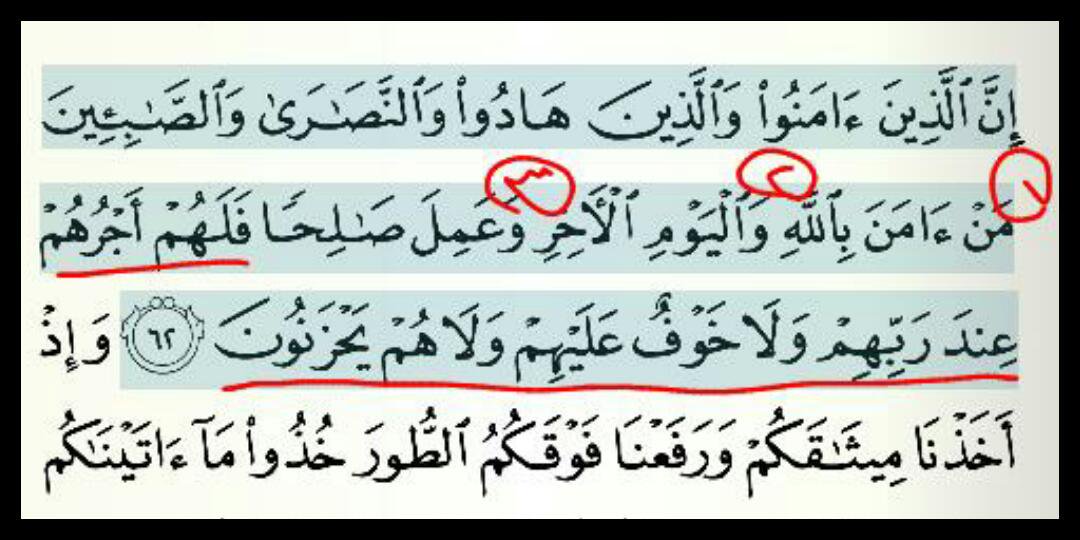 إِنَّ ٱلَّذِينَ ءَامَنُوا۟ وَٱلَّذِينَ هَادُوا۟ وَٱلنَّصَٰرَىٰ وَٱلصَّٰبِـِٔينَ
١ ٢ ٣
مَنْ ءَامَنَ بِٱللَّهِ وَٱلْيَوْمِ ٱلْأَخِرِ وَعَمِلَ صَٰلِحًا فَلَهُمْ أَجْرُهُمْ
عِندَ رَبِّهِمْ وَلَا خَوْفٌ عَلَيْهِمْ وَلَا هُمْ يَحْزَنُونَ ٦٢ وَإِذْ
أَخَذْنَا مِيثَٰقَكُمْ وَرَفَعْنَا فَوْقَكُمُ ٱلطُّورَ خُذُوا۟ مَآ ءَاتَيْنَٰكُم